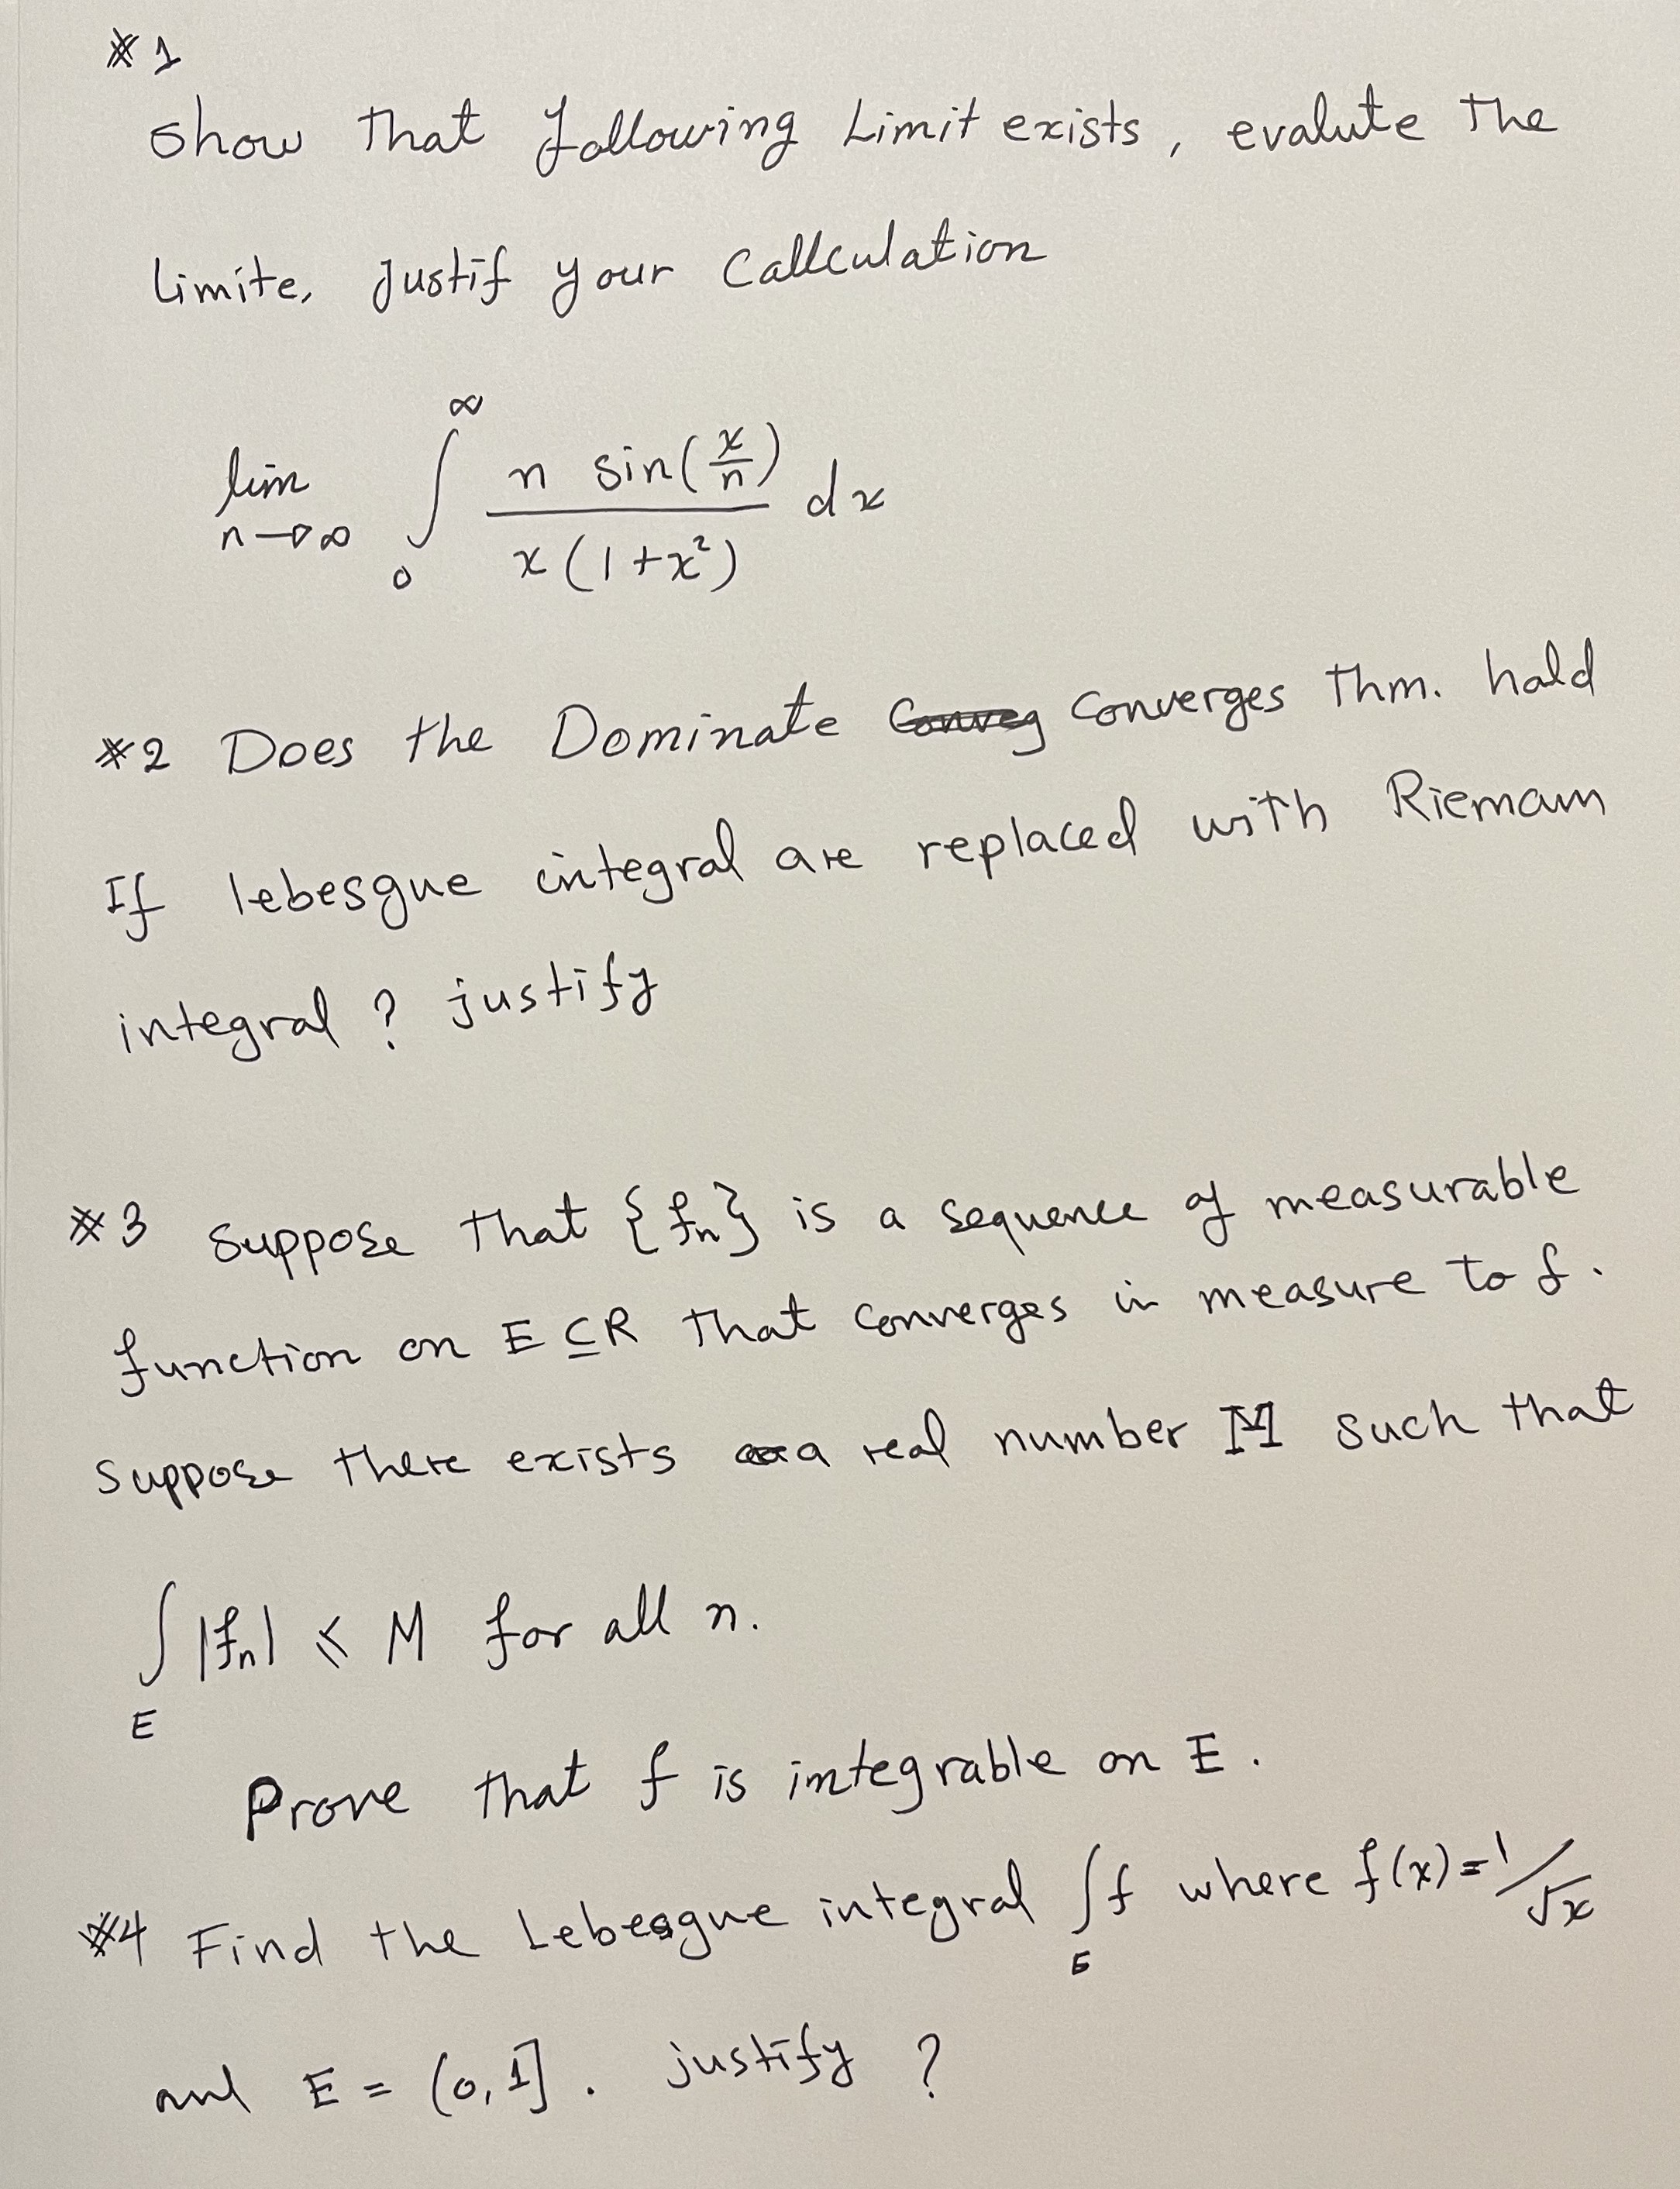 #1
Show that following Limit exists, evalute the
limite, Justif your Callculation
lim n→∞ ∫₀^∞ n sin(x/n) / x(1+x²) dx
#2 Does the Dominate Converges Thm. hald
If lebesgue integral are replaced with Riemann
integral ? justify
#3 Suppose that {fn} is a sequence of measurable
function on E ⊆ R that converges in measure to f.
Suppose there exists a real number M such that
∫_E |fn| ≤ M for all n.
Prove that f is integrable on E.
#4 Find the Lebesgue integral ∫_E f where f(x) = 1/√x
and E = (0,1]. justify ?